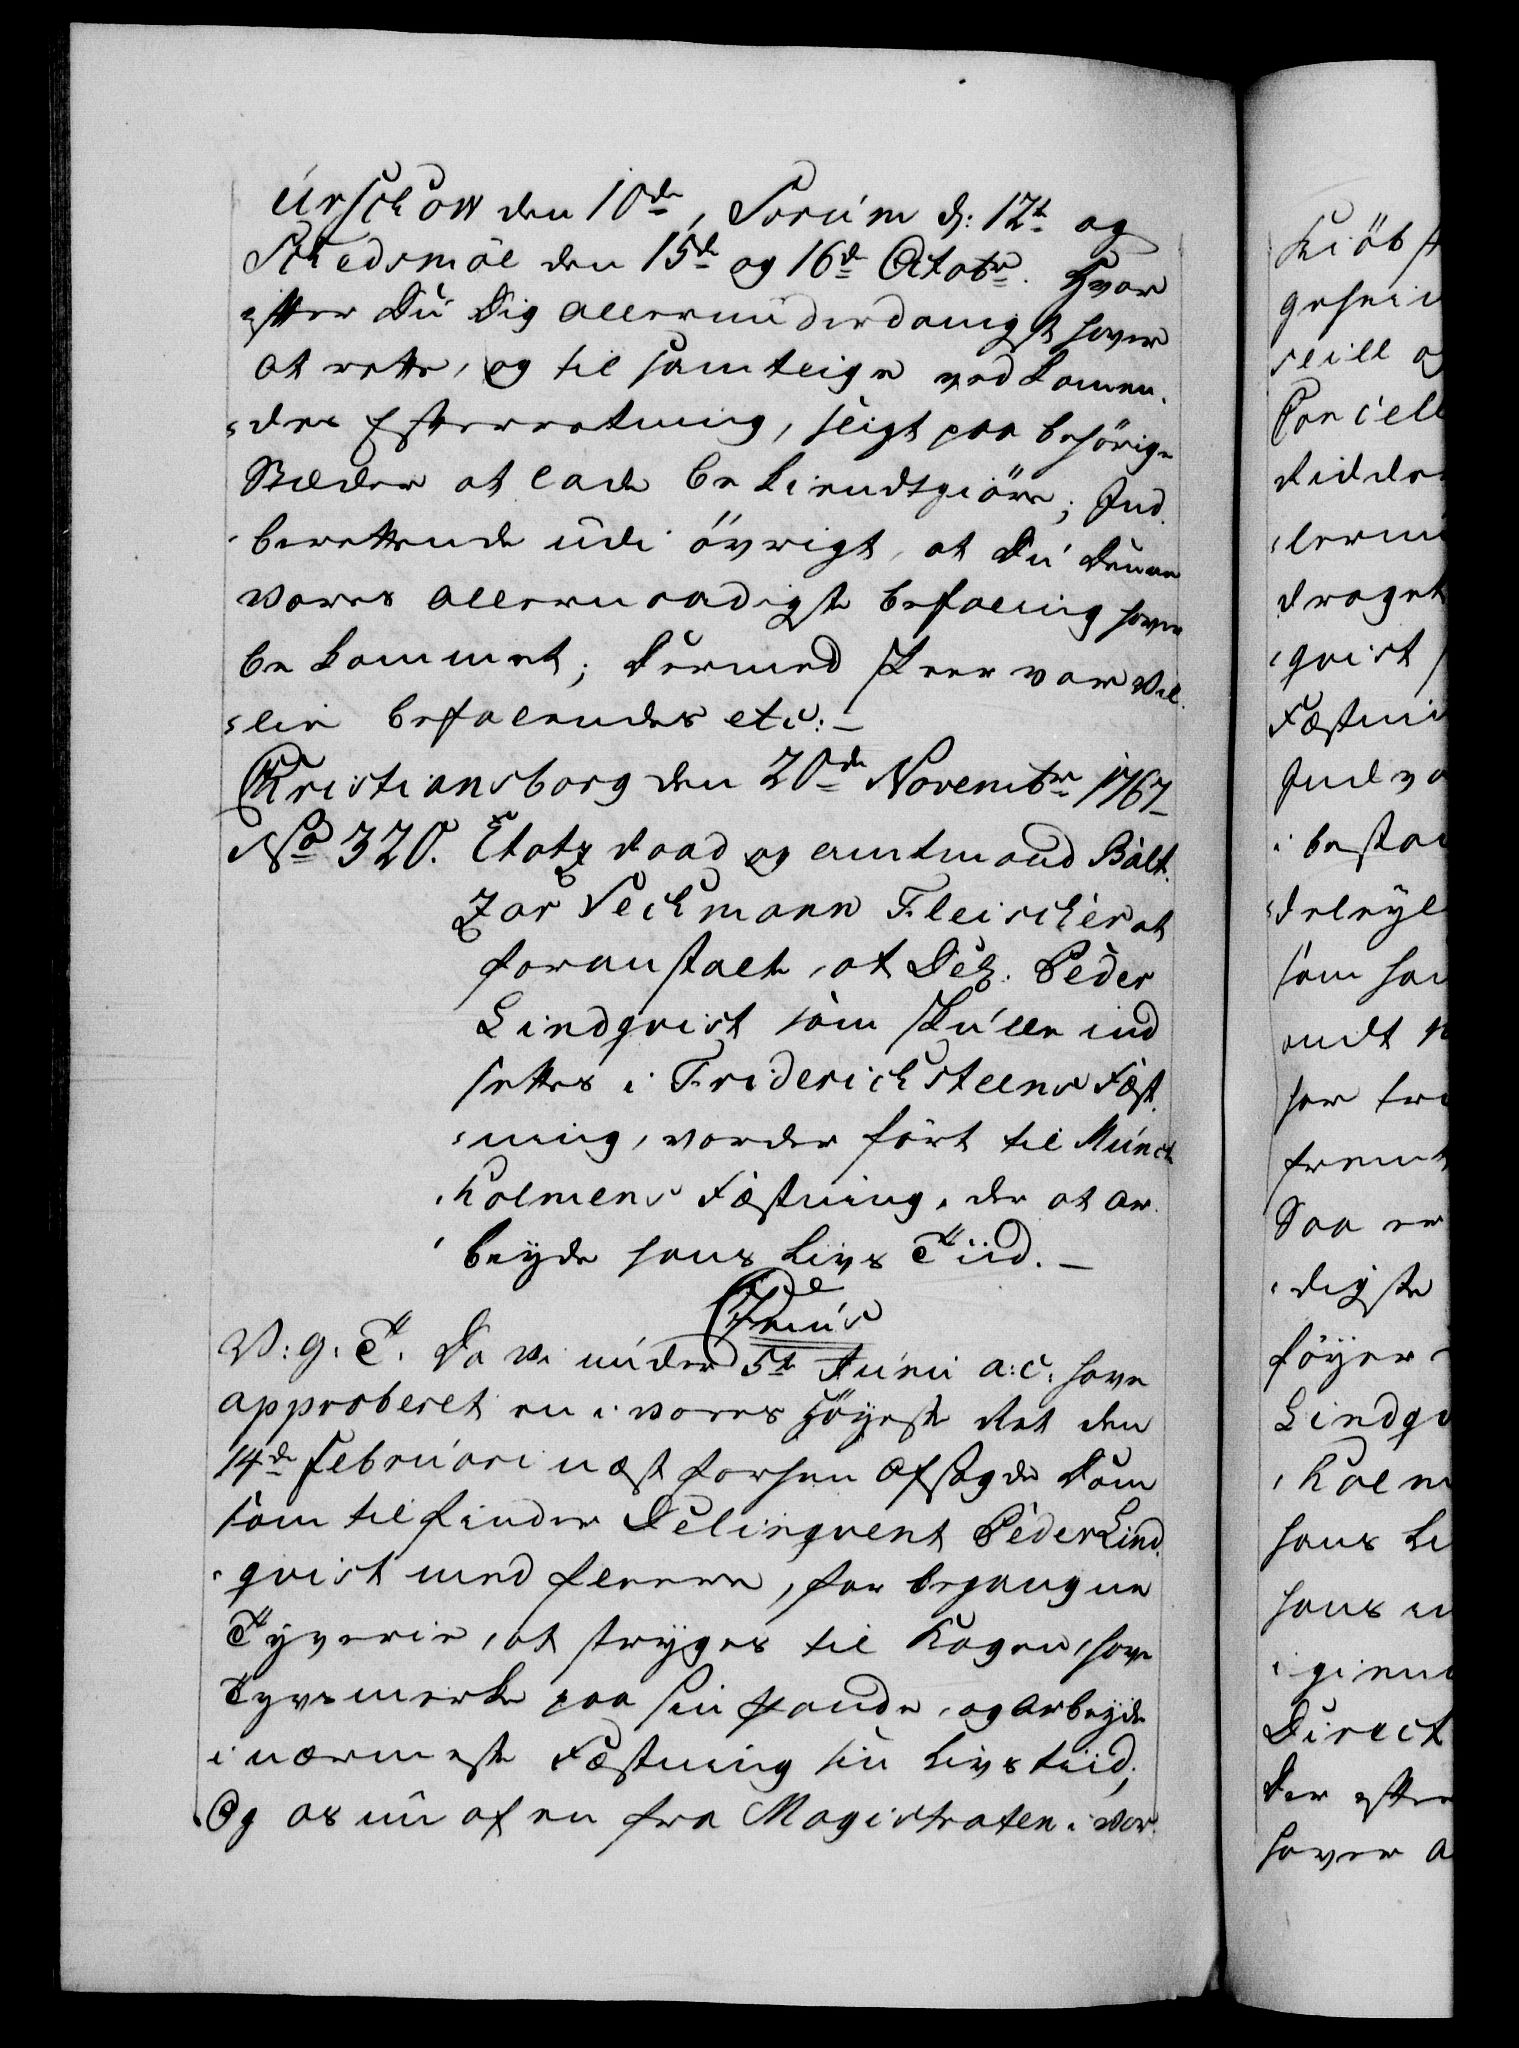 Urschow den 10de, Sørum d: 12te og
Schedsmoe den 15de og 16de Octobr. Hvor
efter Du Dig allerunderdanigst haver
at rette, og til samtlige vedkommen-
des Efterretning, sligt paa behörige
Stæder at lade bekiendtgiöre; Ind-
berettende udi övrigt, at Du denne
vores allernaadigste befaling haver
bekommet; Dermed skeer vor Vil-
lie befalendes etc:
Christiansborg den 20de Novembr 1767
No 320. Etatz Raad og amtmand Balt-
zar Sechmann Fleischer at
foranstalte, at Del. Peder
Lindqvist som skulle ind
settes i Friderichsteens Fæst-
ning, vorder fört til Munch-
holmens Fæstning, der at ar-
beyde hans Livs Tiid.
Chr: 7mus
V: g. T. Da Vi under 5te Junii a: c: have
approberet en i vores Höyeste Ret den
14de Februari næst forhen afsagde Dom
som tilfinder Delinqvent Peder Lind-
qvist med fleere, for begangne
Tyverie, at stryges til Kagen, have
Tyvsmerke paa sin Pande, og arbeyde
i nærmeste Fæstning sin Livstiid;
Og os nu af en fra Magistraten i vor
Kiöbst
seill og
Parcell
dragt
qvist
Fæstni
som ha
Saa er
digste
föyer
Lindqv
holm
hans Li
hans
Direct
Der efter
haver a